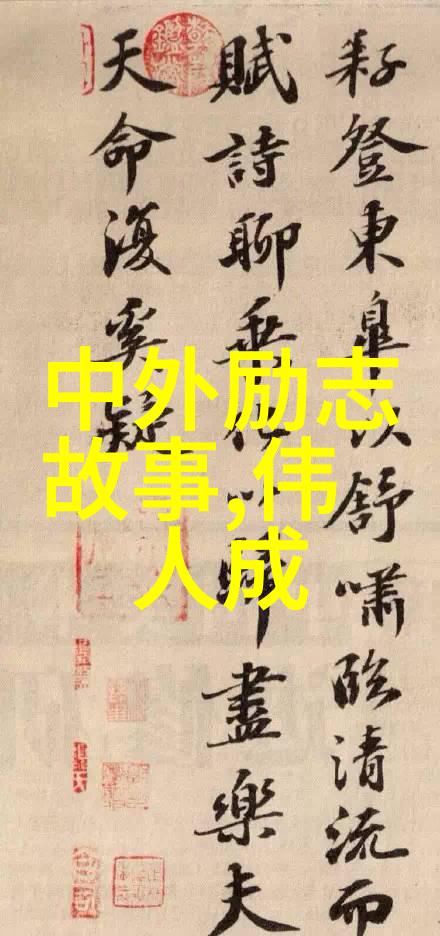 耔登東皐以舒嘯臨清流而
賦詩聊乘化以歸盡樂夫
天命復奚疑
中外励志
故事,伟
人成